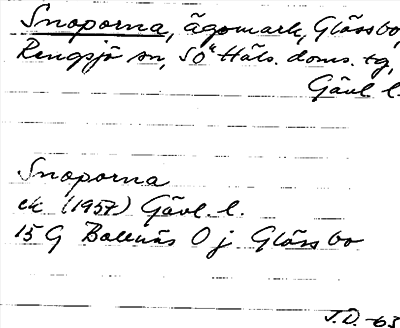 Snoporna, ägomark, Glässbo,
Rengsjö sn, SÖ Häls. doms. tg,
Gävl. l.
Snoporna
ek (1957) Gävl. l.
15 G Bollnäs 0 j Glässbo
J.D. -63